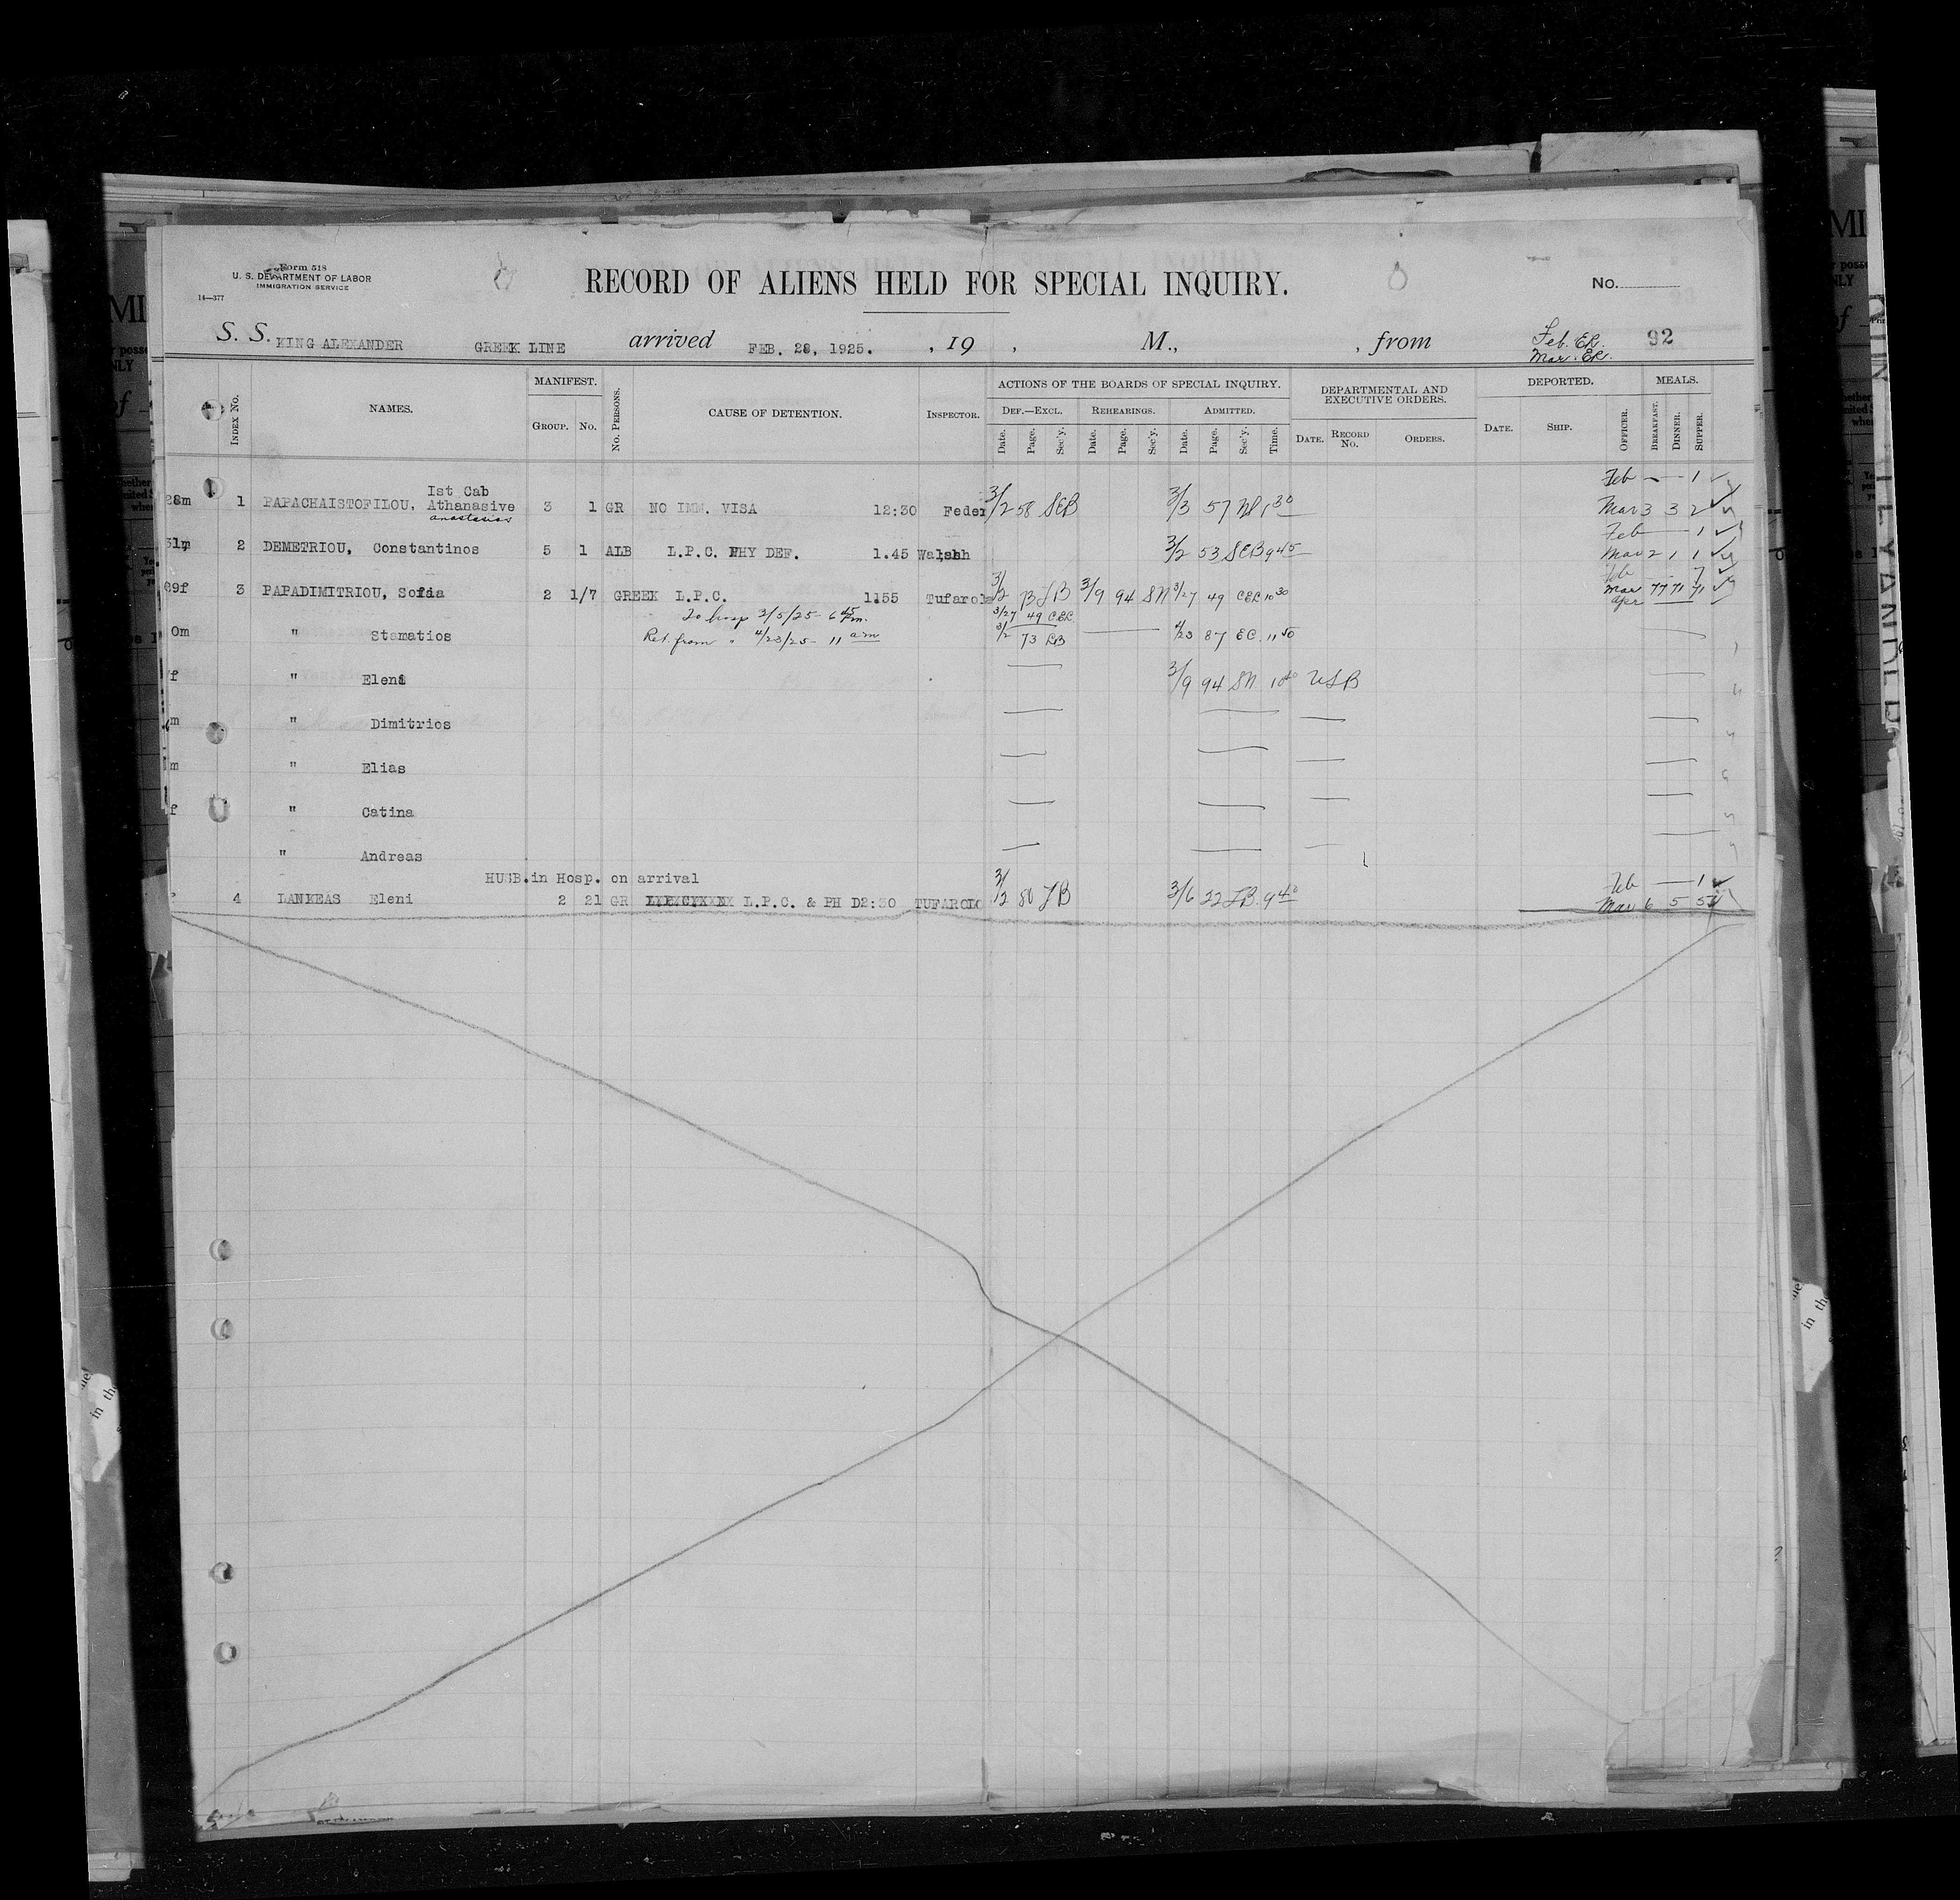 Form 518
U. S. DEPARTMENT OF LABOR
IMMIGRATION SERVICE
14—377
RECORD OF ALIENS HELD FOR SPECIAL INQUIRY.
No.
S. S. KING ALEXANDER GREEK LINE arrived FEB. 28, 1925. , 19 , M., , from Feb. ER. 92
Mar. ER.
INDEX NO. NAMES. MANIFEST. GROUP. NO. NO. PERSONS. CAUSE OF DETENTION. INSPECTOR. ACTIONS OF THE BOARDS OF SPECIAL INQUIRY. DEPARTMENTAL AND EXECUTIVE ORDERS. DEPORTED. MEALS.
DEF.—EXCL. REHEARINGS. ADMITTED.
Date. Page. Sec'y. Date. Page. Sec'y. Date. Page. Sec'y. Time. DATE. RECORD NO. ORDERS. DATE. SHIP. OFFICER. BREAKFAST. DINNER. SUPPER.
Ist Cab Feb 1
28m 1 PAPACHAISTOFILOU, Athanasive 3 1 GR NO IMM. VISA 12:30 Feder 3/2 58 SEB 3/3 57 1 30 Mar 3 3 2
anastasios
Feb 1
31m 2 DEMETRIOU, Constantinos 5 1 ALB L.P.C. PHY DEF. 1.45 Walsh 3/2 53 SEB 9 45 Mar 2 1 1
Feb 7
39f 3 PAPADIMITRIOU, Sofia 2 1/7 GREEK L.P.C. 1155 Tufarolo 3/2 LB 3/9 94 SN 3/27 49 CEC 10 30 Mar 77 71 71
Apr
To hosp 3/5/25- 6 45 pm. 3/27 49 CEC
0m " Stamatios Ret. from " 4/23/25- 11 am 3/2 73 LB 4/23 87 EC. 11 50
f " Eleni 3/9 94 SN 1 40 USB
m " Dimitrios
m " Elias
f " Catina
" Andreas
HUSB. in Hosp. on arrival Feb 1
4 LANKEAS Eleni 2 21 GR L.P.C. & PH D 2:30 TUFAROLO 3/2 80 LB 3/6 22 LB. 9 40 Mar 6 5 5